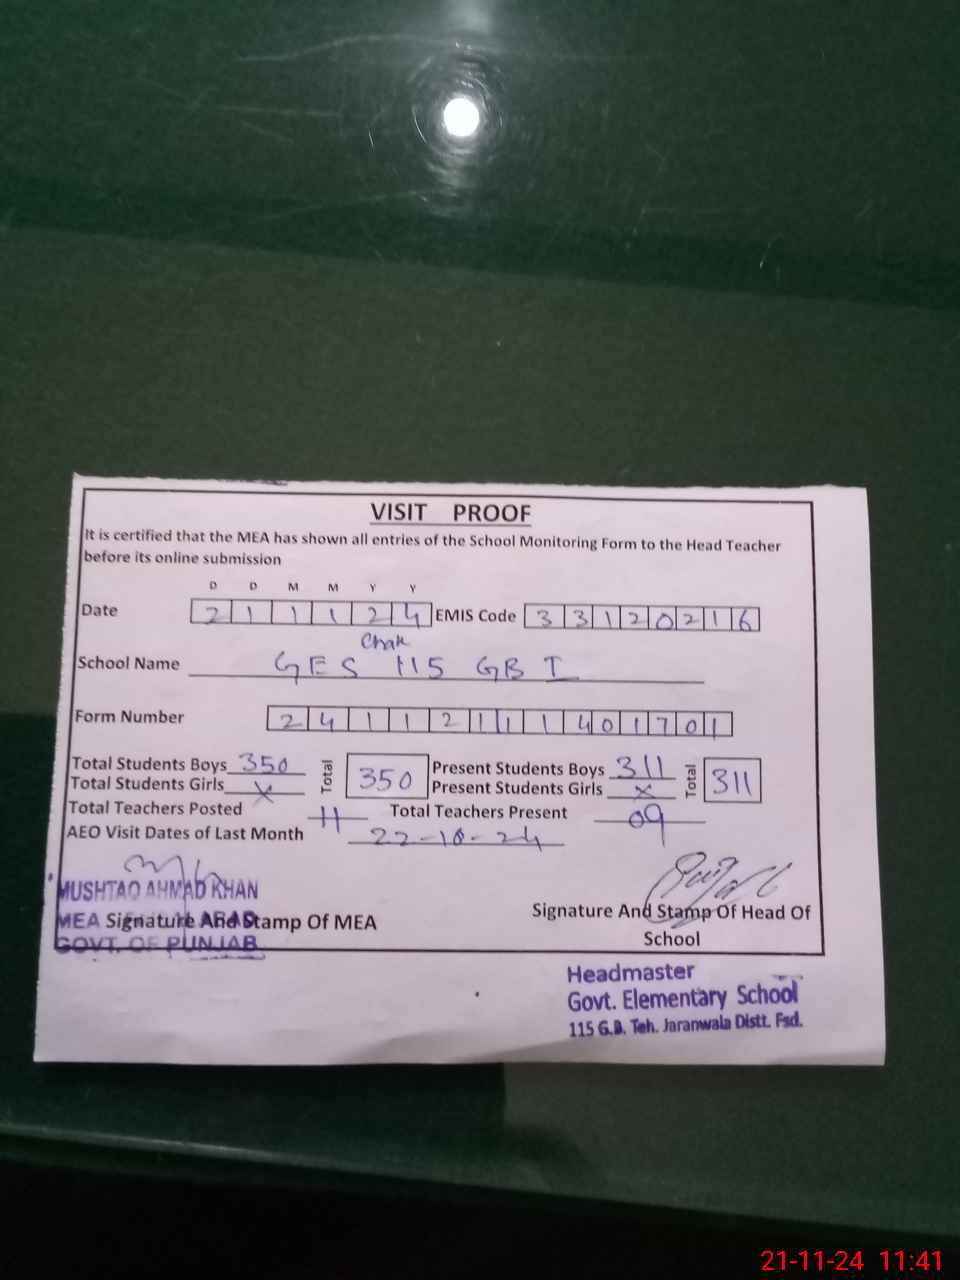 VISIT PROOF
It is certified that the MEA has shown all entries of the School Monitoring Form to the Head Teacher
before its online submission
D D M M Y Y
Date 2 1 1 1 2 4 EMIS Code 3 3 1 2 0 2 1 6
Chak
School Name GES 115 GB I
Form Number 2 4 1 1 2 1 1 1 4 0 1 7 0 1
Total Students Boys 350 Total 350 Present Students Boys 311 Total 311
Total Students Girls X Present Students Girls X
Total Teachers Posted 11 Total Teachers Present 09
AEO Visit Dates of Last Month 22-10-24
MUSHTAQ AHMAD KHAN
MEA Signature And Stamp Of MEA
GOVT. OF PUNJAB
Signature And Stamp Of Head Of
School
Headmaster
Govt. Elementary School
115 G.B. Teh. Jaranwala Distt. Fsd.
21-11-24 11:41